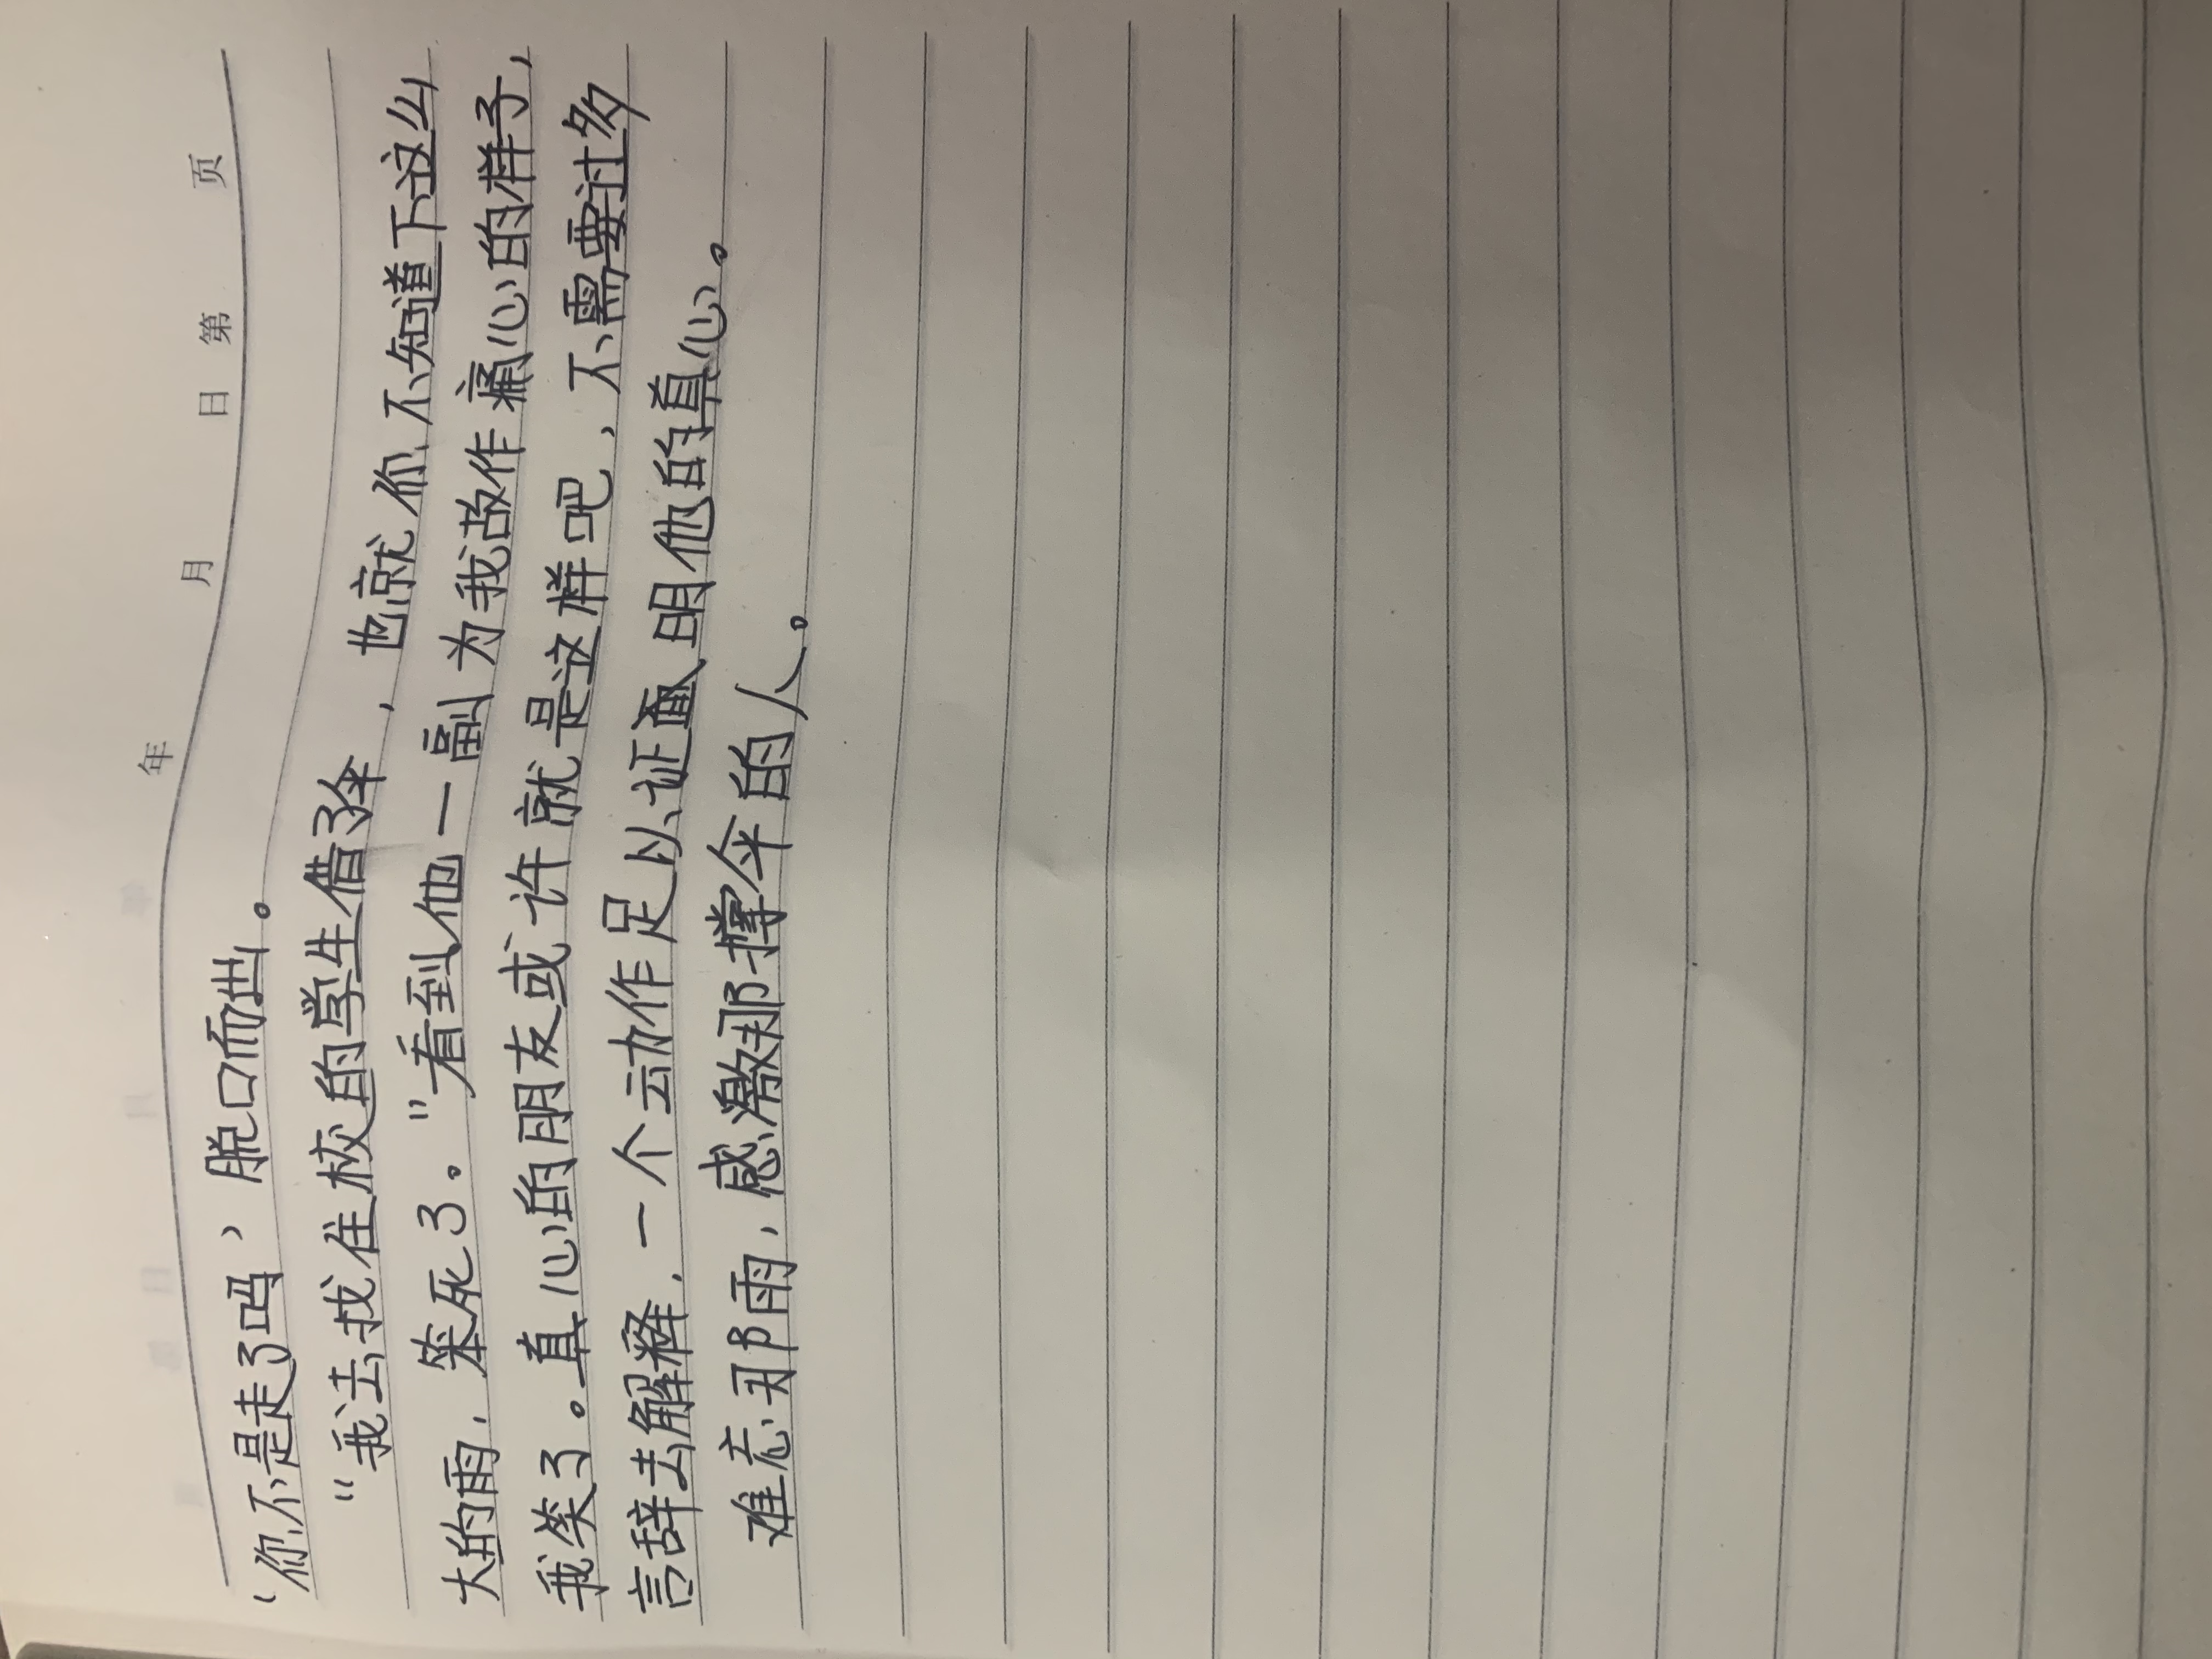 年 月 日 第 页
‘你不是走了吗’脱口而出。
“我去找住校的学生借了伞，也就你不知道下这么
大的雨，笨死了。”看到他一副为我故作痛心的样子，
我笑了。真心的朋友或许就是这样吧，不需要过多
言辞去解释，一个动作足以证明他的真心。
难忘那雨，感激那撑伞的人。